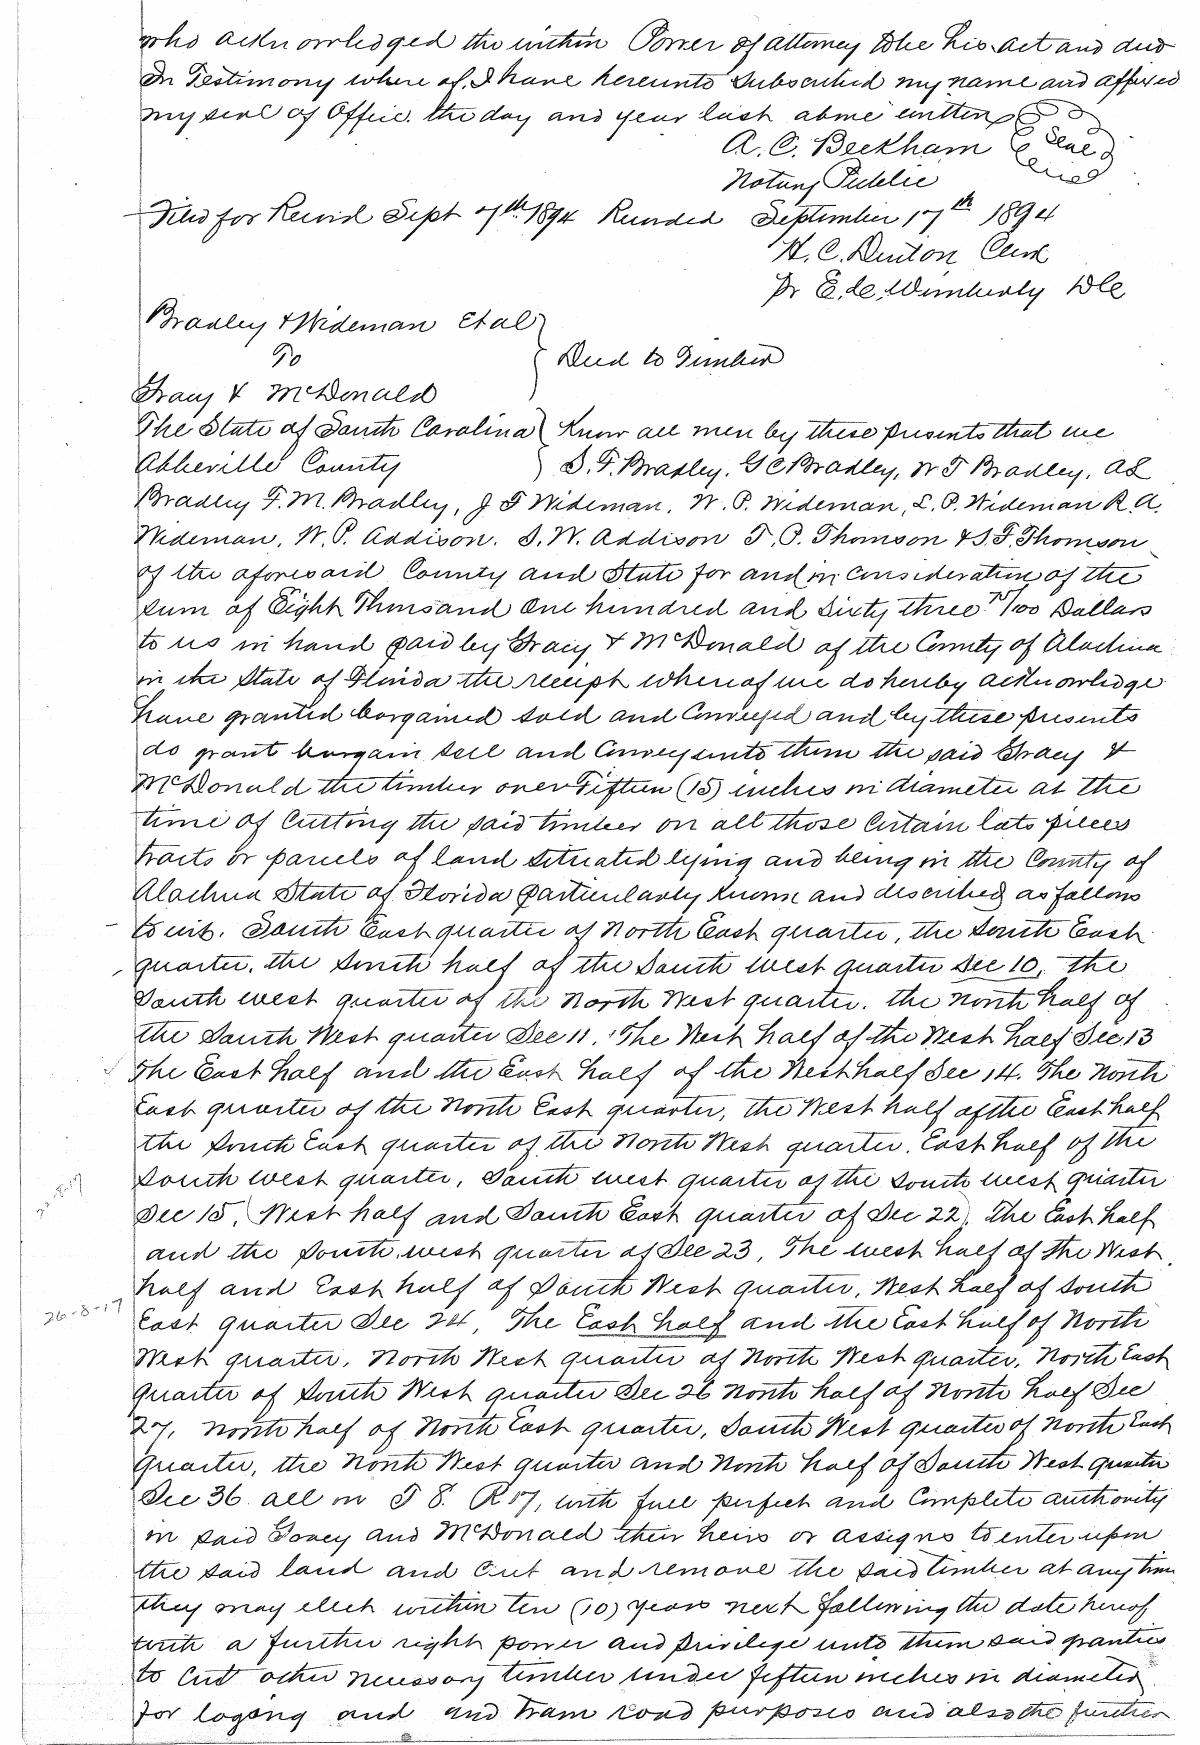 who acknowledged the within Power of attorney to be his act and deed
In Testimony where of I have hereunto Subscribed my name and affixed
my seal of Office the day and year last above written
A. C. Beckham
Seal
Notary Public
Filed for Record Sept 7th 1894 Recorded September 17th 1894
H. C. Denton Clerk
Pr E. C. Wimberly DC
Bradley & Wideman Et al
To
Deed to Timber
Gracy & McDonald
The State of South Carolina Know all men by these presents that we
Abbeville County S. F. Bradley, G C Bradley, W T Bradley, A L
Bradley F. M. Bradley, J T Wideman, W. P. Wideman, L. P. Wideman R. A.
Wideman, W. P. Addison. S. W. Addison T. P. Thomson & S. F. Thomson
of the aforesaid County and State for and in consideration of the
sum of Eight Thousand One hundred and Sixty three 75/100 Dollars
to us in hand paid by Gracy & McDonald of the County of Alachua
in the State of Florida the receipt whereof we do hereby acknowledge
have granted bargained sold and Conveyed and by these presents
do grant bargain sell and Convey unto them the said Gracy &
McDonald the timber over Fifteen (15) inches in diameter at the
time of Cutting the said timber on all those Certain lots pieces
tracts or parcels of land situated lying and being in the County of
Alachua State of Florida particularly known and described as follows
to wit. South East quarter of North East quarter, the South East
quarter, the South half of the South west quarter Sec 10, the
South west quarter of the North West quarter. the North half of
the South West quarter Sec 11. The West half of the West half Sec 13
The East half and the East half of the West half Sec 14. The North
East quarter of the North East quarter, the West half of the East half
the South East quarter of the North West quarter. East half of the
South west quarter, South west quarter of the South west quarter
22-8-17
Sec 15, (West half and South East quarter of Sec 22). The East half
and the South west quarter of Sec 23, The west half of the West
half and East half of South West quarter, West half of South
26-8-17
East quarter Sec 24, The East half and the East half of North
West quarter, North West quarter of North West quarter, North East
quarter of South West quarter Sec 26 North half of North half Sec
27, North half of North East quarter, South West quarter of North East
Quarter, the North West quarter and North half of South West quarter
Sec 36 all in T 8. R 17, with full perfect and Complete authority
in said Gracy and McDonald their heirs or assigns to enter upon
the said land and Cut and remove the said timber at any time
they may elect within ten (10) years next following the date hereof
with a further right power and privilege unto them said grantees
to Cut other necessary timber under fifteen inches in diameter
for loging and and tram road purposes and also the further